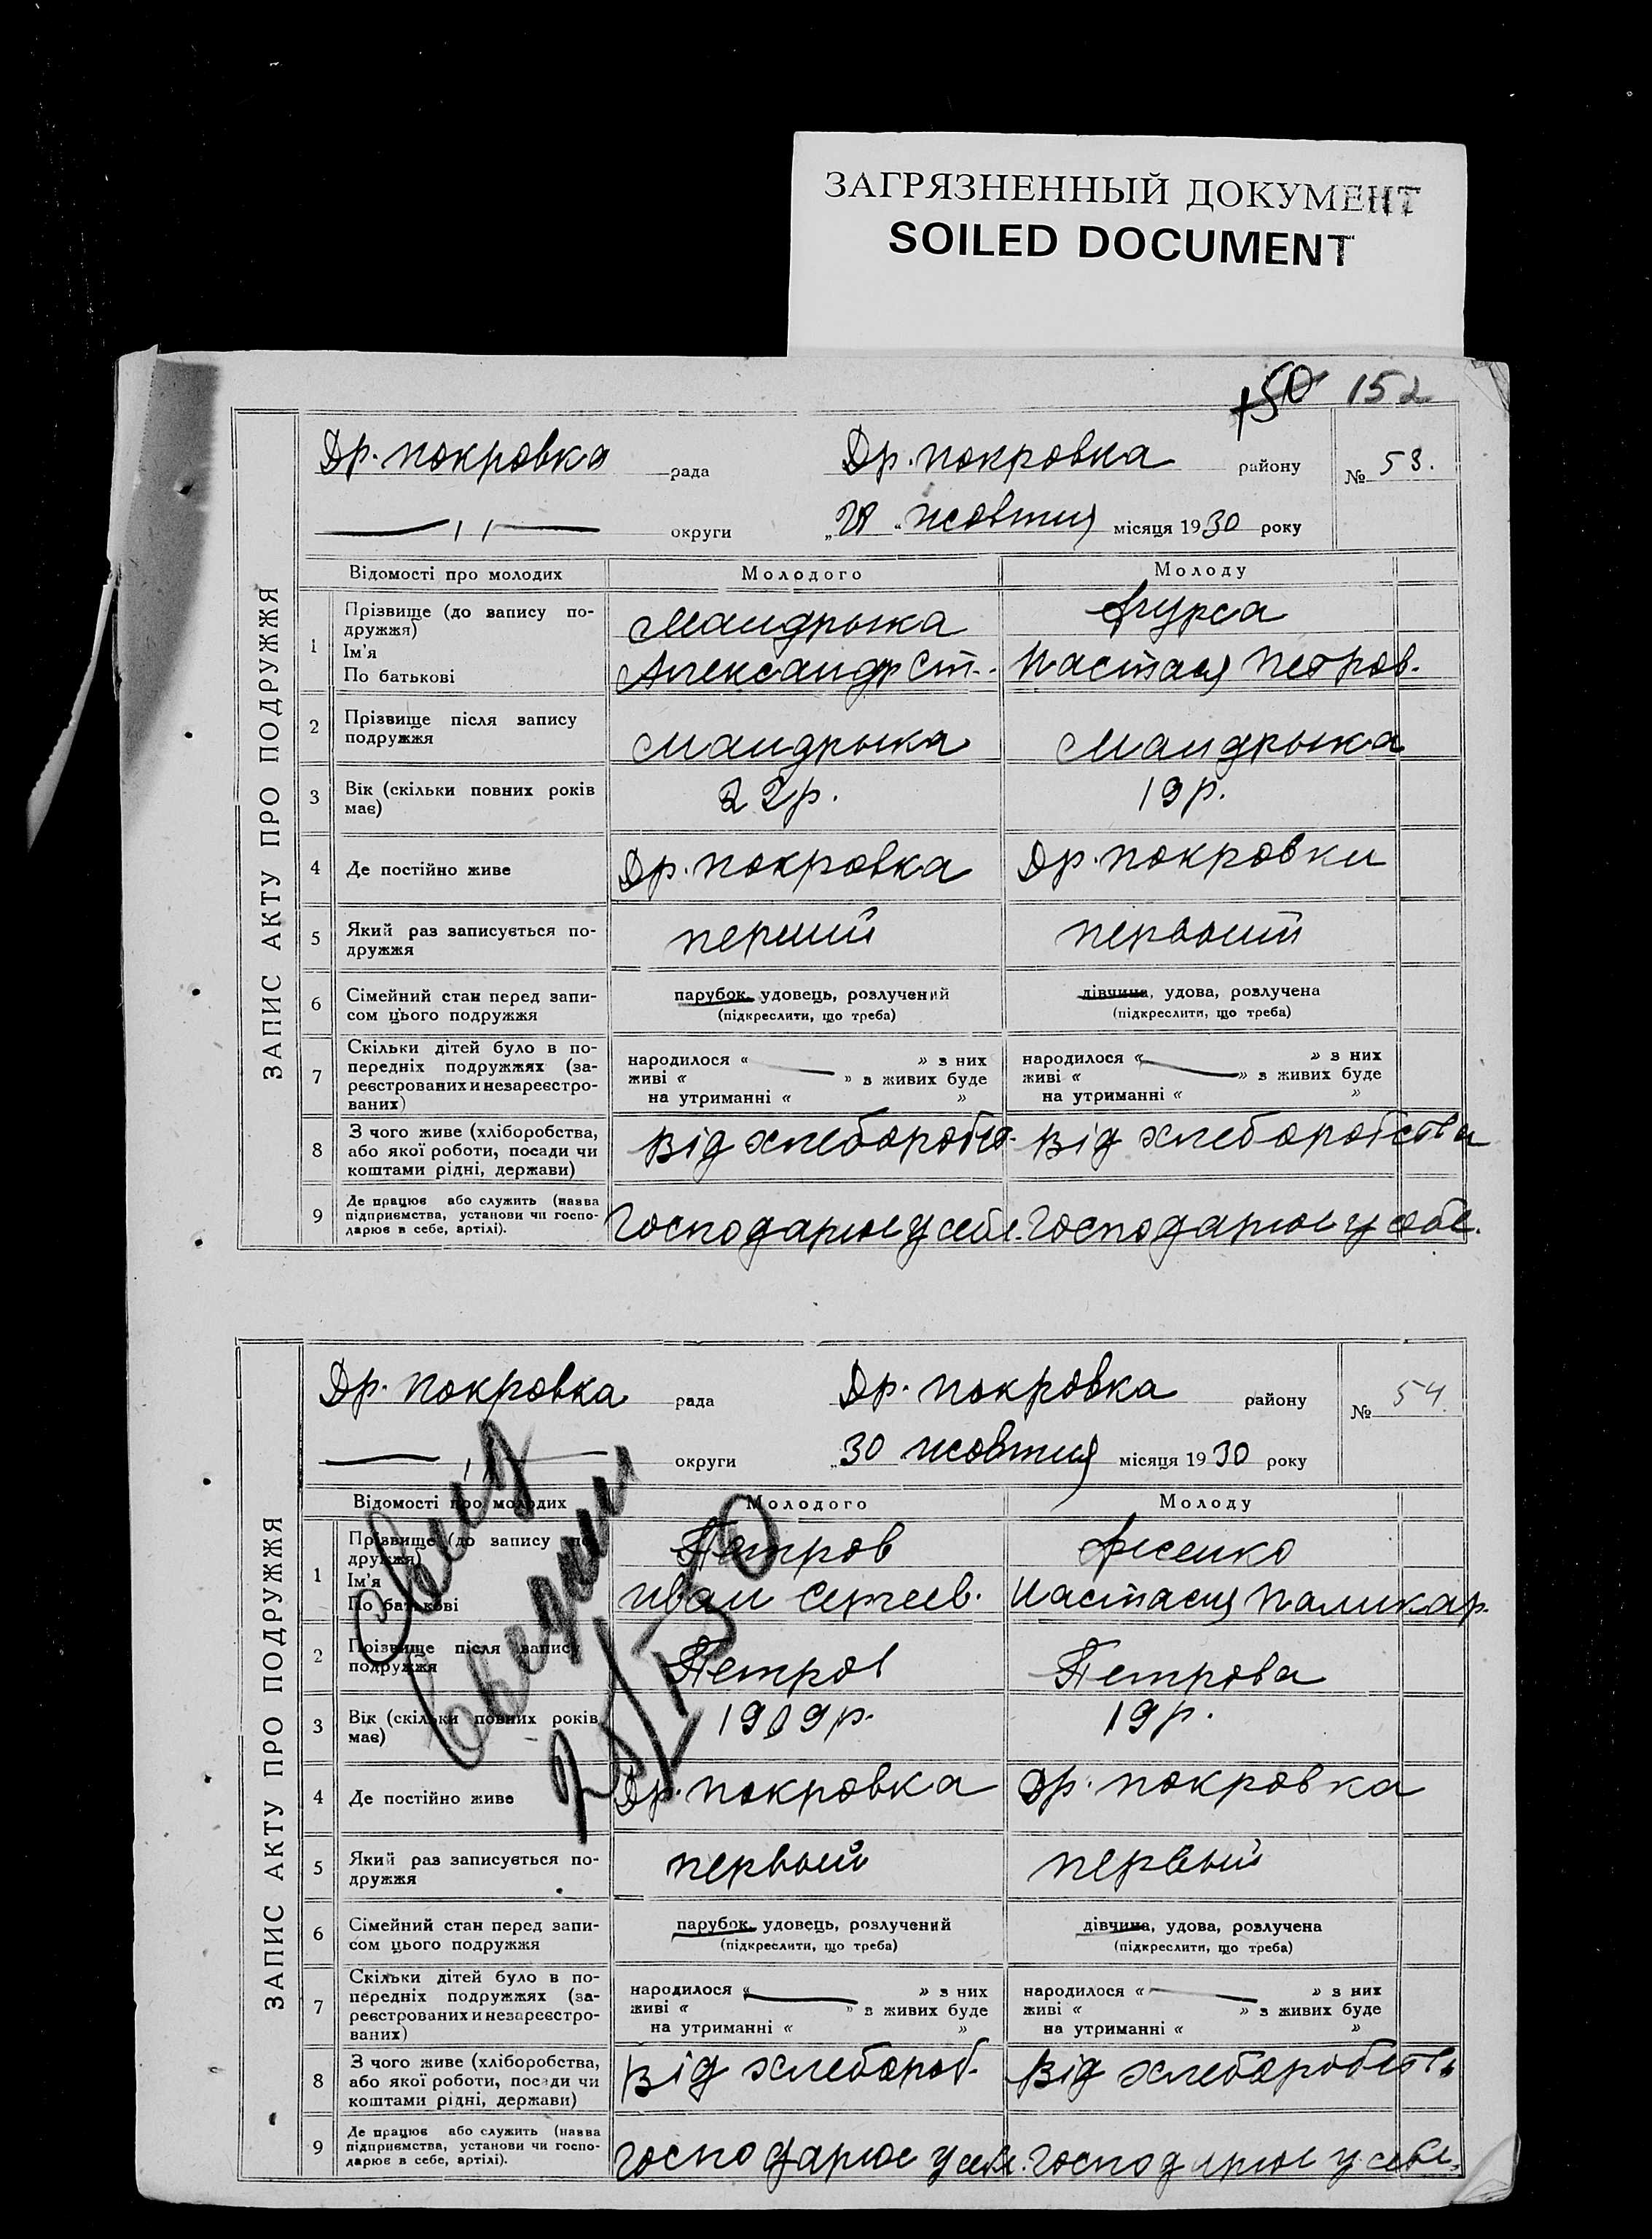 ЗАГРЯЗНЕННЫЙ ДОКУМЕНТ
SOILED DOCUMENT
150 152
ЗАПИС АКТУ ПРО ПОДРУЖЖЯ
Др. покровка рада Др. покровка району № 53.
округи „28 “ жовтня місяця 1930 року
Відомості про молодих Молодого Молоду
1 Прізвище (до запису по-
дружжя) Мандрыка Фурса
Ім'я
По батькові Александр Ст. Настася Петров.
2 Прізвище після запису
подружжя Мандрыка Мандрыка
3 Вік (скільки повних років
має) 22 р. 19 р.
4 Де постійно живе Др. покровка Др. покровки
5 Який раз записується по-
дружжя перший первыий
6 Сімейний стан перед запи-
сом цього подружжя
парубок, удовець, розлучений дівчина, удова, розлучена
(підкреслити, що треба) (підкреслити, що треба)
7 Скільки дітей було в по-
передніх подружжях (за-
реєстрованих и незареєстро-
ваних)
народилося « » з них народилося « » з них
живі « » з живих буде живі « » з живих буде
на утриманні « » на утриманні « »
8 З чого живе (хліборобства,
або якої роботи, посади чи
коштами рідні, держави)
від хлебороб. від хлеборобства
9 Де працює або служить (назва
підприємства, установи чи госпо-
дарює в себе, артілі).
Господарює у себе. Господарює у себе.
ЗАПИС АКТУ ПРО ПОДРУЖЖЯ
Др. покровка рада Др. покровка району № 54.
округи „30 жовтня місяця 1930 року
Відомості про молодих Молодого Молоду
1 Прізвище (до запису по-
дружжя) Петров Фесенко
Ім'я
По батькові Иван Сергеев. Настасия Паликар.
2 Прізвище після запису
подружжя Петров Петрова
3 Вік (скільки повних років
має) 1909 р. 19 р.
4 Де постійно живе Др. покровка Др. покровка
5 Який раз записується по-
дружжя первый первый
6 Сімейний стан перед запи-
сом цього подружжя
парубок, удовець, розлучений дівчина, удова, розлучена
(підкреслити, що треба) (підкреслити, що треба)
7 Скільки дітей було в по-
передніх подружжях (за-
реєстрованих и незареєстро-
ваних)
народилося « » з них народилося « » з них
живі « » з живих буде живі « » з живих буде
на утриманні « » на утриманні « »
8 З чого живе (хліборобства,
або якої роботи, посади чи
коштами рідні, держави)
від хлебороб. від хлеборобств
9 Де працює або служить (назва
підприємства, установи чи госпо-
дарює в себе, артілі).
господарює у себе. господарює у себе.